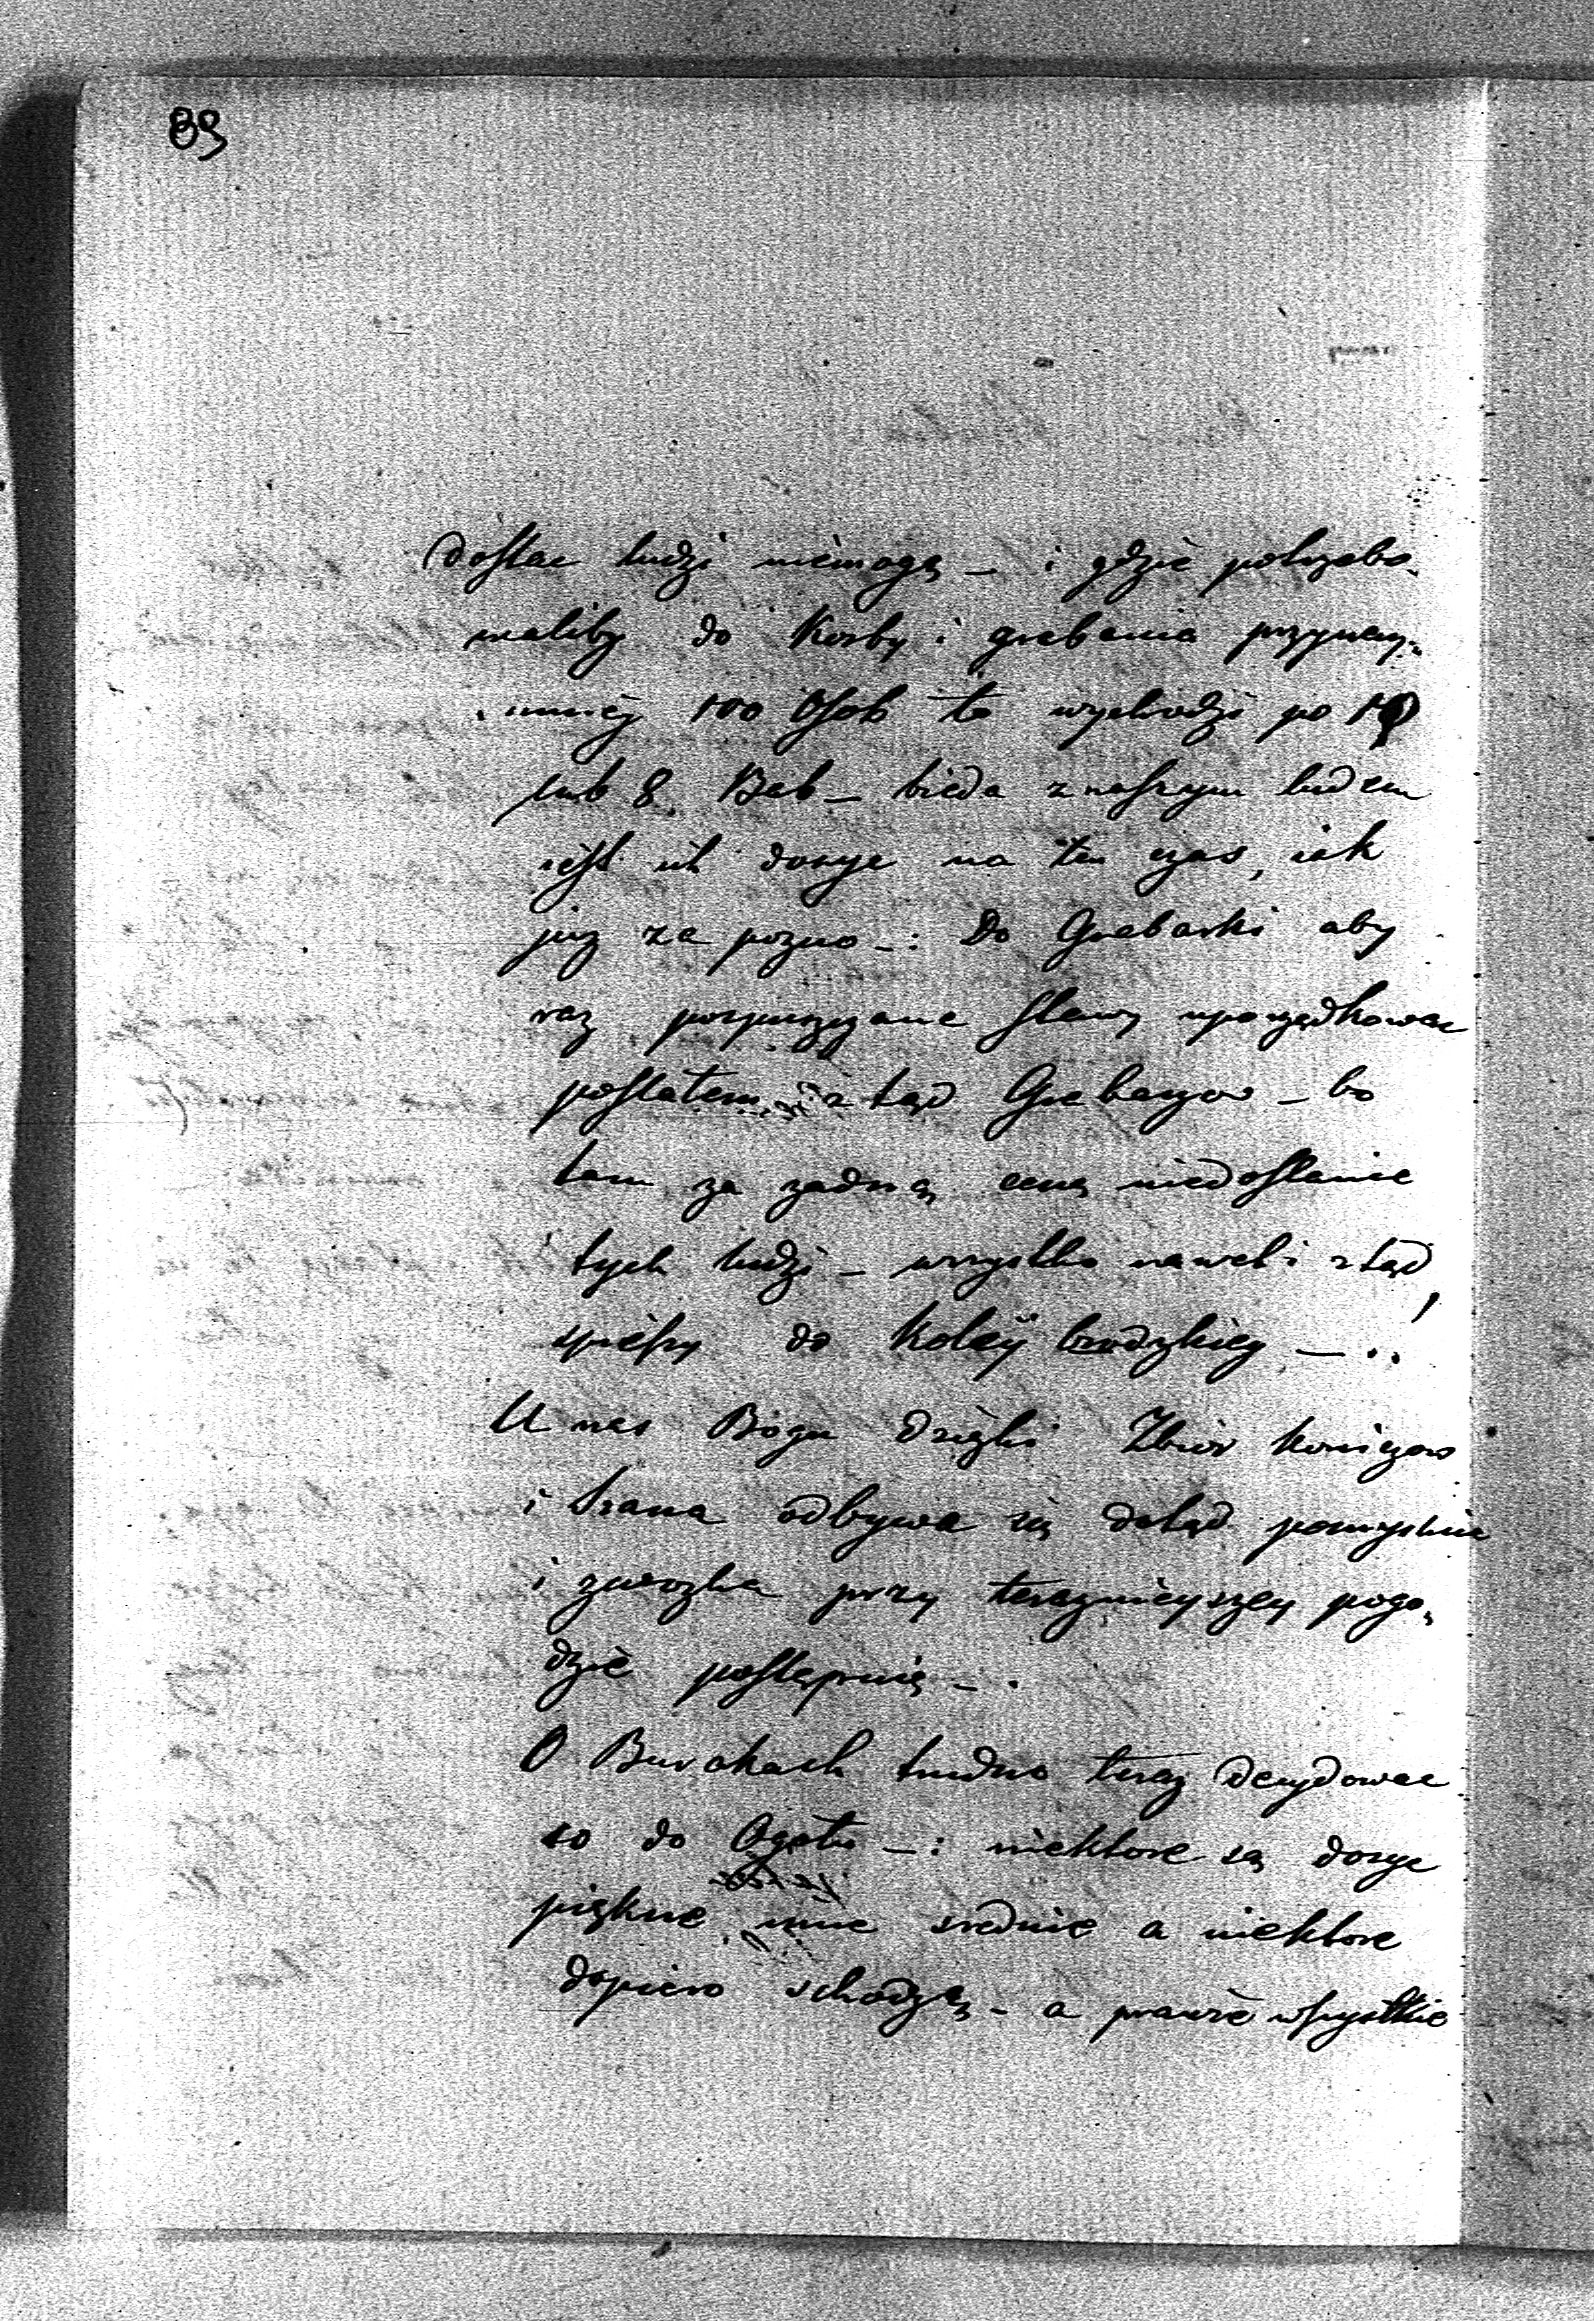 89
dostac ludzi niemogą – i gdzie potrzebo-
waliby do Kosby i grabania przynay-
mniey 100 Osob to wychodzi po 10
lub 8 Bab – bieda z naszym ludem
iest ich dosyc na ten czas, iak
juz za pozno –: Do Grabarki aby
raz porpuszczane stawy uporządkowac
posłałem i z tąd Grabarzow – bo
tam za zadną cenę niedostanie
tych ludzi – wszystko nawet i z tąd
spieszy do Koleÿ brodzkiey – ..
U nas Bogu dzięki Zbior koniczow
i Siana odbywa się dotąd pomyslnie
i zwozka przy teraznieyszey pogo-
dzie postępuie –.
O Burakach trudno teraz decydowac
co do Ogołu –: niektore są dosyc
piękne inne srednie a niektore
dopiero schodzą – a prawie wszystkie